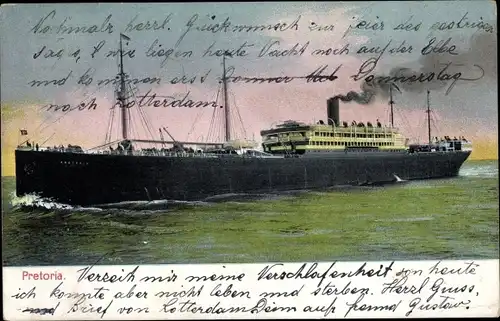 Nochmalr herzl. Glückwunsch zur Feier des gestrigen
Tages, wir liegen heute Nacht noch auf der Elbe
und kommen erst Donnerstag
nach Rotterdam.
PRETORIA
Pretoria. Verzeih mir meine Verschlafenheit von heute
ich konnte aber nicht leben und sterben. Herzl Gruss
und Brief von Rotterdam Deim auf freund Gustav.